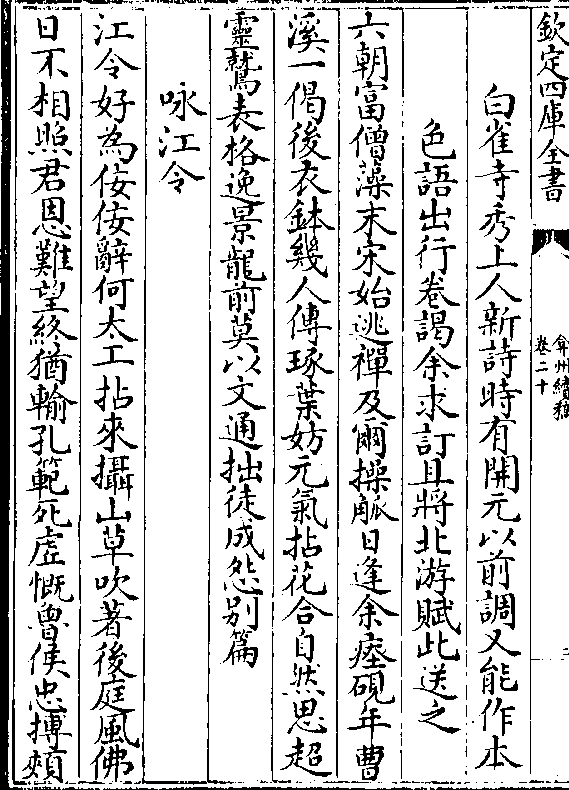 欽定四庫全書
弇州續稿
卷二十
白雀寺秀上人新詩時有開元以前調又能作本
色語出行卷謁余求訂且將北游賦此送之
六朝富僧藻末宋始逃禪及爾操觚日逢余瘞硯年曹
溪一偈後衣鉢幾人傳琢葉妨元氣拈花合自然思超
靈鷲表格逸景龍前莫以文通拙徒成怨别篇
咏江令
江令好為佞佞辭何太工拈來攝山草吹著後庭風佛
日不相照君恩難望終猶輸孔範死虛慨魯侯忠摶頰